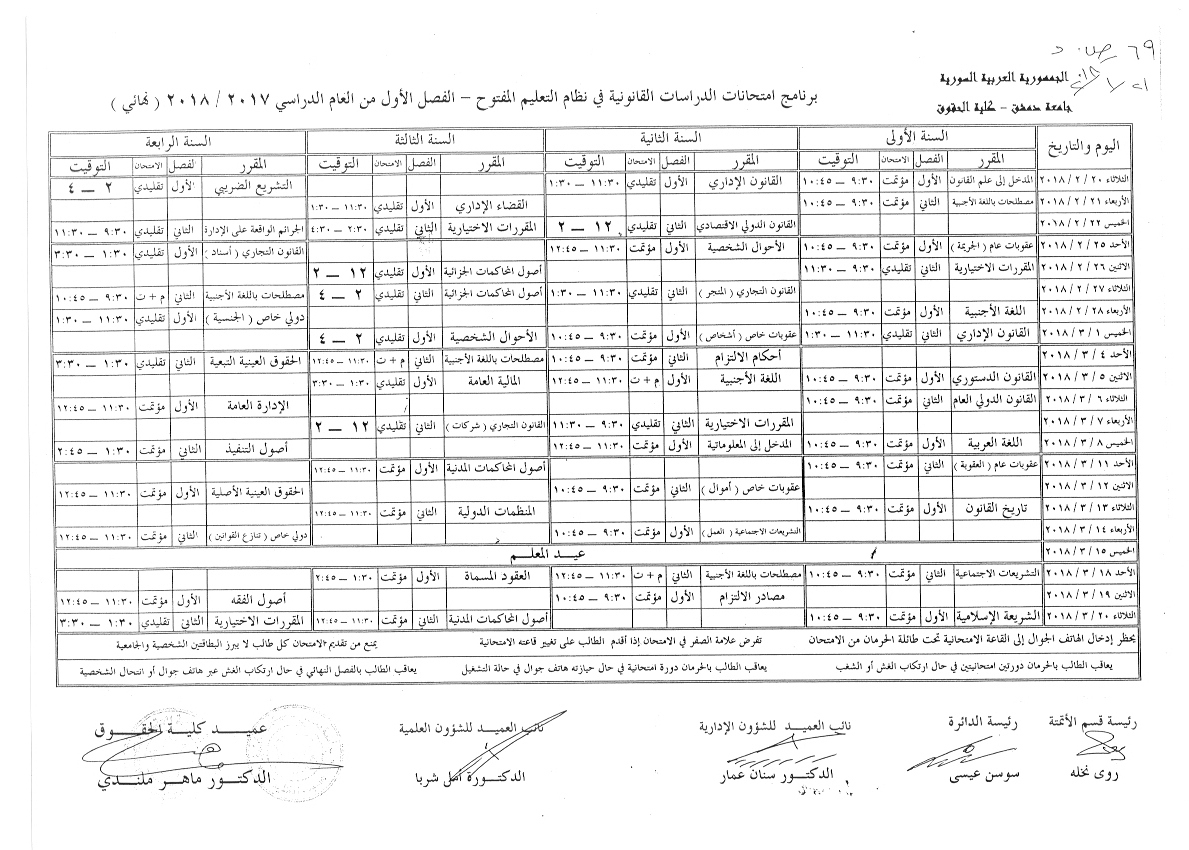 ٦٩ ص.د
الجمهورية العربية السورية
جامعة دمشق – كلية الحقوق
برنامج امتحانات الدراسات القانونية في نظام التعليم المفتوح – الفصل الأول من العام الدراسي ٢٠١٧ / ٢٠١٨ ( نهائي )
اليوم والتاريخ السنة الأولى السنة الثانية السنة الثالثة السنة الرابعة
المقرر الفصل الامتحان التوقيت المقرر الفصل الامتحان التوقيت المقرر الفصل الامتحان التوقيت المقرر الفصل الامتحان التوقيت
الثلاثاء ٢٠ / ٢ / ٢٠١٨ المدخل إلى علم القانون الأول مؤتمت ٩:٣٠ – ١٠:٤٥ القانون الإداري الأول تقليدي ١١:٣٠ – ١:٣٠ التشريع الضريبي الأول تقليدي ٢ – ٤
الأربعاء ٢١ / ٢ / ٢٠١٨ مصطلحات باللغة الأجنبية الثاني مؤتمت ٩:٣٠ – ١٠:٤٥ القضاء الإداري الأول تقليدي ١١:٣٠ – ١:٣٠
الخميس ٢٢ / ٢ / ٢٠١٨ القانون الدولي الاقتصادي الثاني تقليدي ١٢ – ٢ المقررات الاختيارية الثاني تقليدي ٢:٣٠ – ٤:٣٠ الجرائم الواقعة على الإدارة الثاني تقليدي ٩:٣٠ – ١١:٣٠
الأحد ٢٥ / ٢ / ٢٠١٨ عقوبات عام ( الجريمة ) الأول مؤتمت ٩:٣٠ – ١٠:٤٥ الأحوال الشخصية الأول مؤتمت ١١:٣٠ – ١٢:٤٥ القانون التجاري ( أسناد ) الأول تقليدي ١:٣٠ – ٣:٣٠
الاثنين ٢٦ / ٢ / ٢٠١٨ المقررات الاختيارية الثاني تقليدي ٩:٣٠ – ١١:٣٠ أصول المحاكمات الجزائية الأول تقليدي ١٢ – ٢
الثلاثاء ٢٧ / ٢ / ٢٠١٨ القانون التجاري ( المتجر ) الثاني تقليدي ١١:٣٠ – ١:٣٠ أصول المحاكمات الجزائية الثاني تقليدي ٢ – ٤ مصطلحات باللغة الأجنبية الثاني م + ت ٩:٣٠ – ١٠:٤٥
الأربعاء ٢٨ / ٢ / ٢٠١٨ اللغة الأجنبية الأول مؤتمت ٩:٣٠ – ١٠:٤٥ دولي خاص ( الجنسية ) الأول تقليدي ١١:٣٠ – ١:٣٠
الخميس ١ / ٣ / ٢٠١٨ القانون الإداري الثاني تقليدي ١١:٣٠ – ١:٣٠ عقوبات خاص ( أشخاص ) الأول مؤتمت ٩:٣٠ – ١٠:٤٥ الأحوال الشخصية الأول تقليدي ٢ – ٤
الأحد ٤ / ٣ / ٢٠١٨ أحكام الالتزام الثاني مؤتمت ٩:٣٠ – ١٠:٤٥ مصطلحات باللغة الأجنبية الثاني م + ت ١١:٣٠ – ١٢:٤٥ الحقوق العينية التبعية الثاني تقليدي ١:٣٠ – ٣:٣٠
الاثنين ٥ / ٣ / ٢٠١٨ القانون الدستوري الأول مؤتمت ٩:٣٠ – ١٠:٤٥ اللغة الأجنبية الأول م + ت ١١:٣٠ – ١٢:٤٥ المالية العامة الأول تقليدي ١:٣٠ – ٣:٣٠
الثلاثاء ٦ / ٣ / ٢٠١٨ القانون الدولي العام الثاني مؤتمت ٩:٣٠ – ١٠:٤٥ الإدارة العامة الأول مؤتمت ١١:٣٠ – ١٢:٤٥
الأربعاء ٧ / ٣ / ٢٠١٨ المقررات الاختيارية الثاني تقليدي ٩:٣٠ – ١١:٣٠ القانون التجاري ( شركات ) الثاني تقليدي ١٢ – ٢
الخميس ٨ / ٣ / ٢٠١٨ اللغة العربية الأول مؤتمت ٩:٣٠ – ١٠:٤٥ المدخل إلى المعلوماتية الأول مؤتمت ١١:٣٠ – ١٢:٤٥ أصول التنفيذ الثاني مؤتمت ١:٣٠ – ٢:٤٥
الأحد ١١ / ٣ / ٢٠١٨ عقوبات عام ( العقوبة ) الثاني مؤتمت ٩:٣٠ – ١٠:٤٥ أصول المحاكمات المدنية الأول مؤتمت ١١:٣٠ – ١٢:٤٥
الاثنين ١٢ / ٣ / ٢٠١٨ عقوبات خاص ( أموال ) الثاني مؤتمت ٩:٣٠ – ١٠:٤٥ الحقوق العينية الأصلية الأول مؤتمت ١١:٣٠ – ١٢:٤٥
الثلاثاء ١٣ / ٣ / ٢٠١٨ تاريخ القانون الأول مؤتمت ٩:٣٠ – ١٠:٤٥ المنظمات الدولية الثاني مؤتمت ١١:٣٠ – ١٢:٤٥
الأربعاء ١٤ / ٣ / ٢٠١٨ التشريعات الاجتماعية ( العمل ) الأول مؤتمت ٩:٣٠ – ١٠:٤٥ دولي خاص ( تنازع القوانين ) الثاني مؤتمت ١١:٣٠ – ١٢:٤٥
الخميس ١٥ / ٣ / ٢٠١٨ عيد المعلم
الأحد ١٨ / ٣ / ٢٠١٨ التشريعات الاجتماعية الثاني مؤتمت ٩:٣٠ – ١٠:٤٥ مصطلحات باللغة الأجنبية الثاني م + ت ١١:٣٠ – ١٢:٤٥ العقود المسماة الأول مؤتمت ١:٣٠ – ٢:٤٥
الاثنين ١٩ / ٣ / ٢٠١٨ مصادر الالتزام الأول مؤتمت ٩:٣٠ – ١٠:٤٥ أصول الفقه الأول مؤتمت ١١:٣٠ – ١٢:٤٥
الثلاثاء ٢٠ / ٣ / ٢٠١٨ الشريعة الإسلامية الأول مؤتمت ٩:٣٠ – ١٠:٤٥ أصول المحاكمات المدنية الثاني مؤتمت ١١:٣٠ – ١٢:٤٥ المقررات الاختيارية الثاني تقليدي ١:٣٠ – ٣:٣٠
يحظر إدخال الهاتف الجوال إلى القاعة الامتحانية تحت طائلة الحرمان من الامتحان تفرض علامة الصفر في الامتحان إذا أقدم الطالب على تغيير قاعته الامتحانية يمنع من تقديم الامتحان كل طالب لا يبرز البطاقتين الشخصية والجامعية
يعاقب الطالب بالحرمان دورتين امتحانيتين في حال ارتكاب الغش أو الشغب يعاقب الطالب بالحرمان دورة امتحانية في حال حيازته هاتف جوال في حالة التشغيل يعاقب الطالب بالفصل النهائي في حال ارتكاب الغش عبر هاتف جوال أو انتحال الشخصية
رئيسة قسم الأتمتة رئيسة الدائرة نائب العميد للشؤون الإدارية نائب العميد للشؤون العلمية عميد كلية الحقوق
روى نخله سوسن عيسى الدكتور سنان عمار الدكتورة أمل شربا الدكتور ماهر ملندي